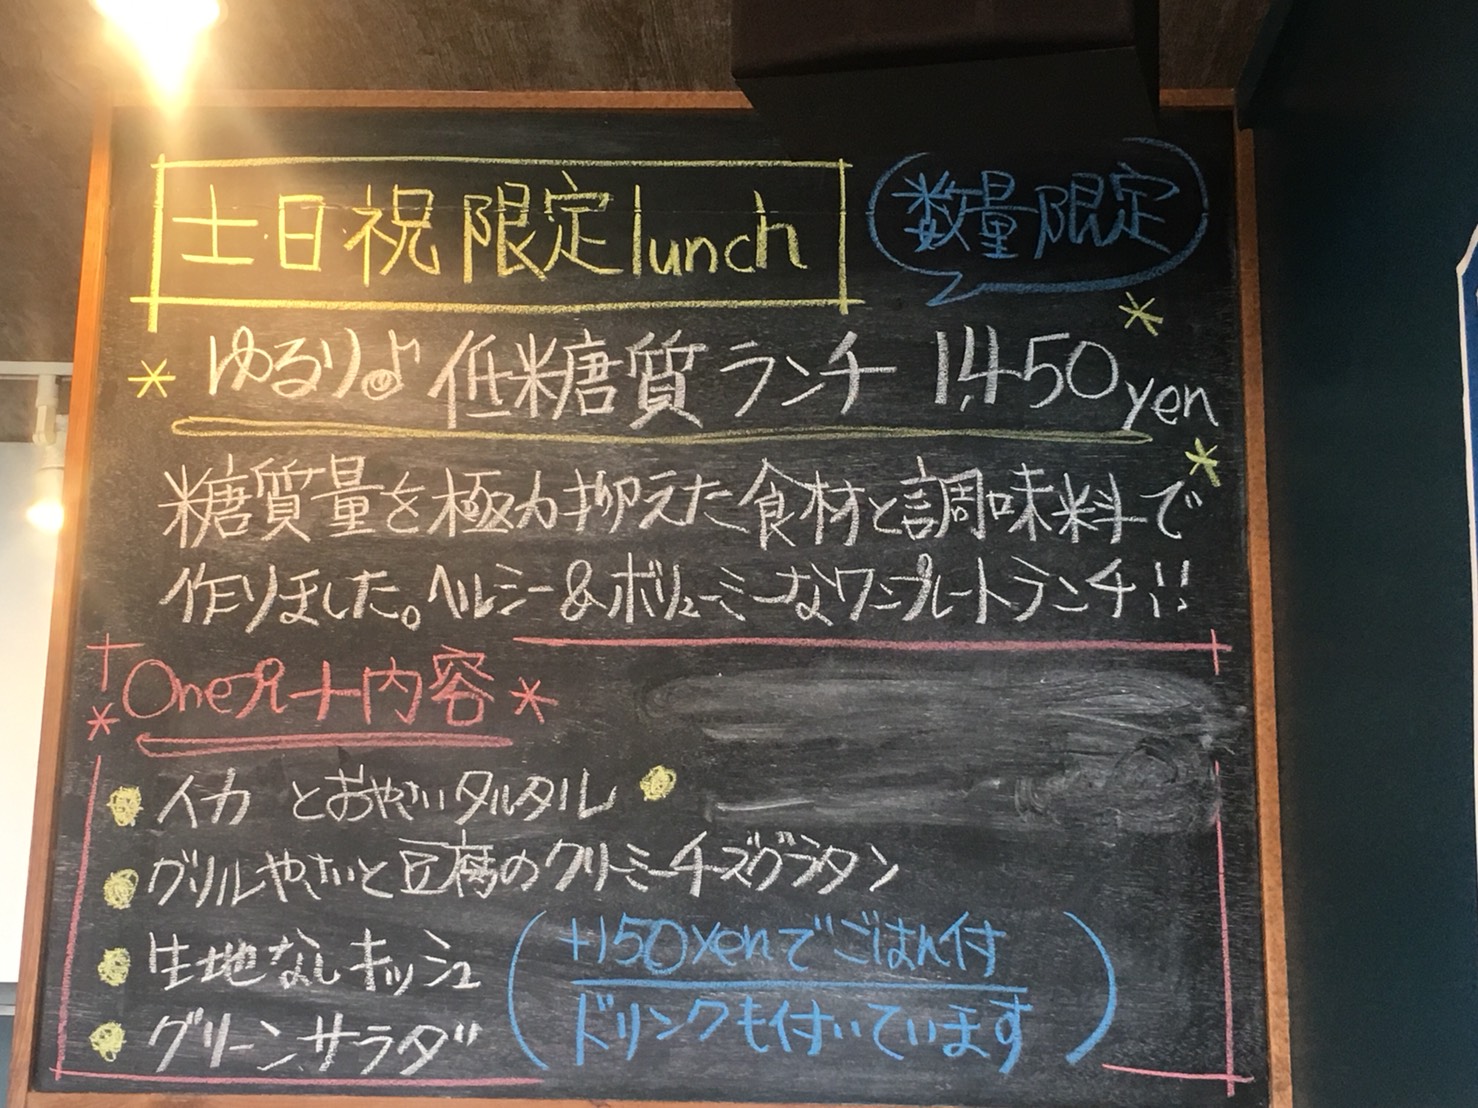 土・日・祝 限定lunch
数量限定
ゆるりよ 低糖質ランチ 1,450yen
糖質量を極力抑えた食材と調味料で
作りました。ヘルシー&ボリューミーなワンプレートランチ!!
Oneプレート内容
イカ とおやさいタルタル
グリルやさいと豆腐のクリーミーチーズグラタン
生地なしキッシュ
グリーンサラダ
(+150yenでごはん付
ドリンクも付いています)